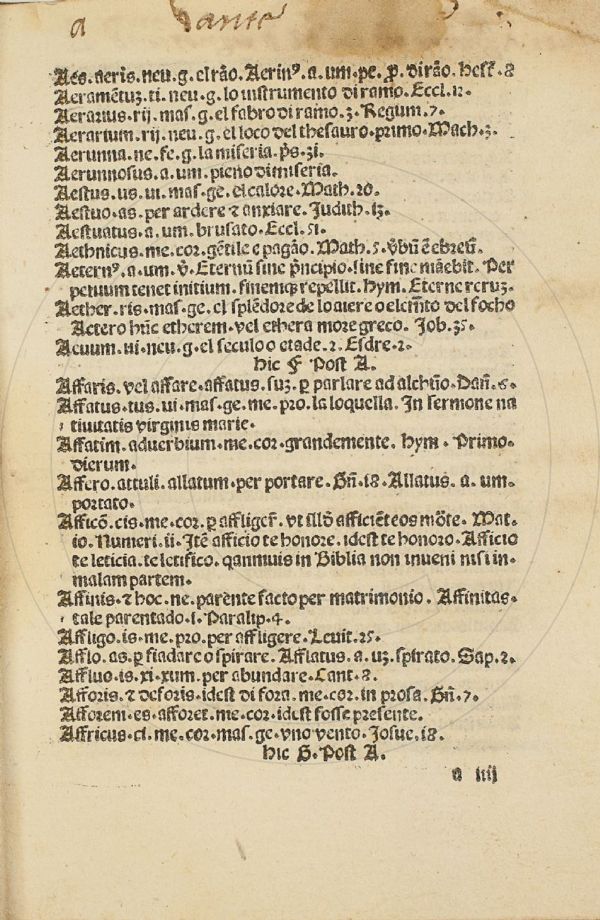 a
Aes. aeris. neu. g. el rão. Aerinꝰ. a. um. pe. ꝓ. di rão. Hest. 8
Aeramẽtuꝫ. ti. neu. g. lo instrumento di ramo. Eccl. 12.
Aerarius. rij. mas. g. el fabro di ramo. 3. Regum. 7.
Aerarium. rij. neu. g. el loco del thesauro. primo. Mach. 3.
Aerunna. ne. fe. g. la miseria. p̃s. 31.
Aerunnosus. a. um. pieno di miseria.
Aestus. us. ui. mas. ge. el calore. Math. 20.
Aestuo. as. per ardere ⁊ anxiare. Judith. 13.
Aestuatus. a. um. brusato. Eccl. 51.
Aethnicus. me. cor. gẽtile e pagão. Math. 5. v̾bũ ẽ ebreũ.
Aeternꝰ. a. um. v̾. Eternũ sine p̃ncipio. sine fine mãebit. Per
petuum tenet initium. finemqꝫ repellit. Hym. Eterne reruꝫ.
Aether. ris. mas. ge. el splẽdore de lo aiere o elem̃to del focho
Aetero hũc etherem. vel ethera more greco. Job. 35.
Aeuum. ui. neu. g. el seculo o etade. 2. Esdre. 2.
Hic F Post A.
Affaris. vel affare. affatus. suꝫ. ꝑ parlare ad alchũo. Dañ. 6.
Affatus. tus. ui. mas. ge. me. pro. la loquella. In sermone na
tiuitatis virginis marie.
Affatim. aduerbium. me. cor. grandemente. hym. Primo.
dierum.
Affero. attuli. allatum. per portare. Gñ. 18. Allatus. a. um.
portato.
Afficõ. cis. me. cor. ꝑ affliger̃. vt illð afficiẽt eos mõte. Mat.
10. Numeri. 11. Itẽ afficio te honore. idest te honoro. Afficio
te leticia. te letifico. qanmuis in Biblia non inueni nisi in.
malam partem.
Affinis. ⁊ hoc. ne. parente facto per matrimonio. Affinitas.
tale parentado. 1. Paralip. 4.
Affligo. is. me. pro. per affligere. Leuit. 25.
Afflo. as. ꝑ fiadare o spirare. Afflatus. a. uꝫ. spirato. Sap. 2.
Affluo. is. xi. xum. per abundare. Cant. 8.
Afforis. ⁊ deforis. idest di fora. me. cor. in prosa. Gñ. 7.
Afforem. es. afforet. me. cor. idest fosse presente.
Affricus. ci. me. cor. mas. ge. vno vento. Josue. 18.
Hic G. Post A.
a iiij